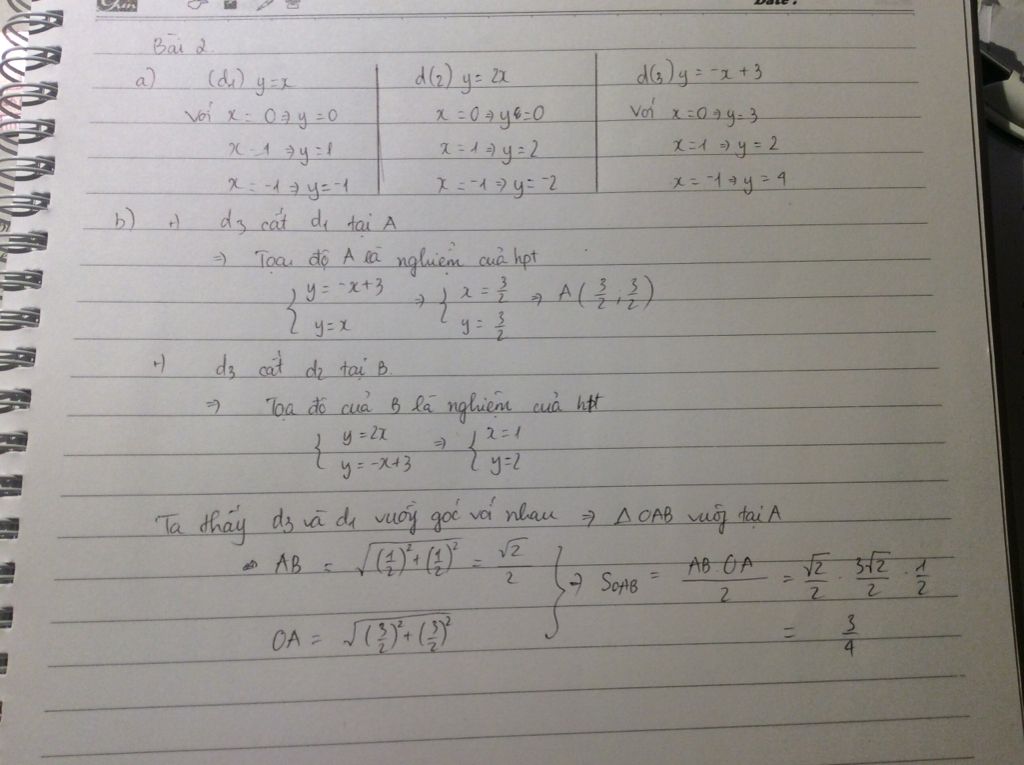 Date:
Bài 2
a) (d1) y=x d(2) y=2x d(3) y=-x+3
Với x=0⇒y=0 x=0⇒y=0 Với x=0⇒y=3
x=1⇒y=1 x=1⇒y=2 x=1⇒y=2
x=-1⇒y=-1 x=-1⇒y=-2 x=-1⇒y=4
b) +) d3 cắt d1 tại A
⇒ Tọa độ A là nghiệm của hpt
{ y=-x+3 ; y=x ⇒ { x=3/2 ; y=3/2 ⇒ A(3/2; 3/2)
+) d3 cắt d2 tại B.
⇒ Tọa độ của B là nghiệm của hpt
{ y=2x ; y=-x+3 ⇒ { x=1 ; y=2
Ta thấy d3 và d1 vuông góc với nhau ⇒ Δ OAB vuông tại A
⇒ AB = √((1/2)²+(1/2)²) = √2/2 } ⇒ SOAB = AB.OA/2 = √2/2 . 3√2/2 . 1/2
OA = √((3/2)²+(3/2)²) = 3/4